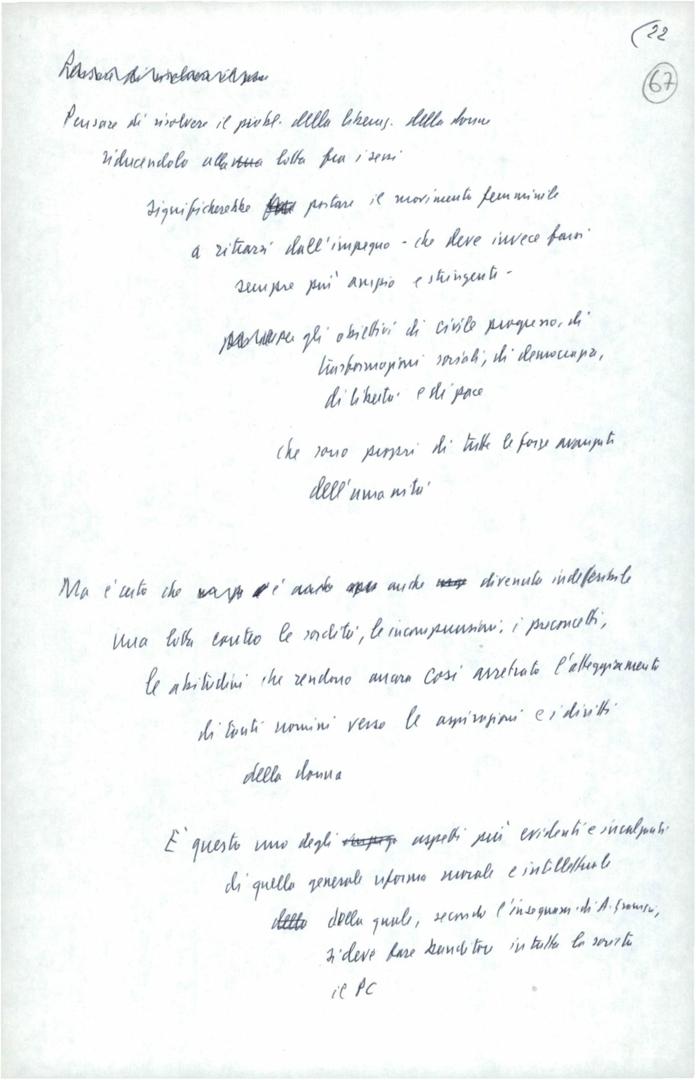 22
67
Pensare di risolvere il probl. della liberaz. della donna
riducendolo alla lotta fra i sessi
significherebbe portare il movimento femminile
a ritrarsi dall'impegno - che deve invece farsi
sempre più ampio e stringente -
per gli obiettivi di civile progresso, di
trasformazioni sociali, di democrazia,
di libertà e di pace
che sono propri di tutte le forze avanzate
dell'umanità
Ma è certo che è anche divenuta indifferibile
una lotta contro le sordità, le incomprensioni, i preconcetti,
le abitudini che rendono ancora così arretrato l'atteggiamento
di tanti uomini verso le aspirazioni e i diritti
della donna
È questo uno degli aspetti più evidenti e
di quella generale riforma morale e intellettuale
della quale, secondo l'insegnam. di A. Gramsci,
si deve fare banditore in tutta la società
il PC